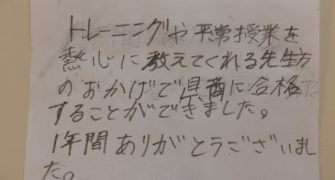 トレーニングや平常授業を
熱心に教えてくれる先生方
のおかげで早商に合格
することができました。
1年間ありがとうございまし
た。